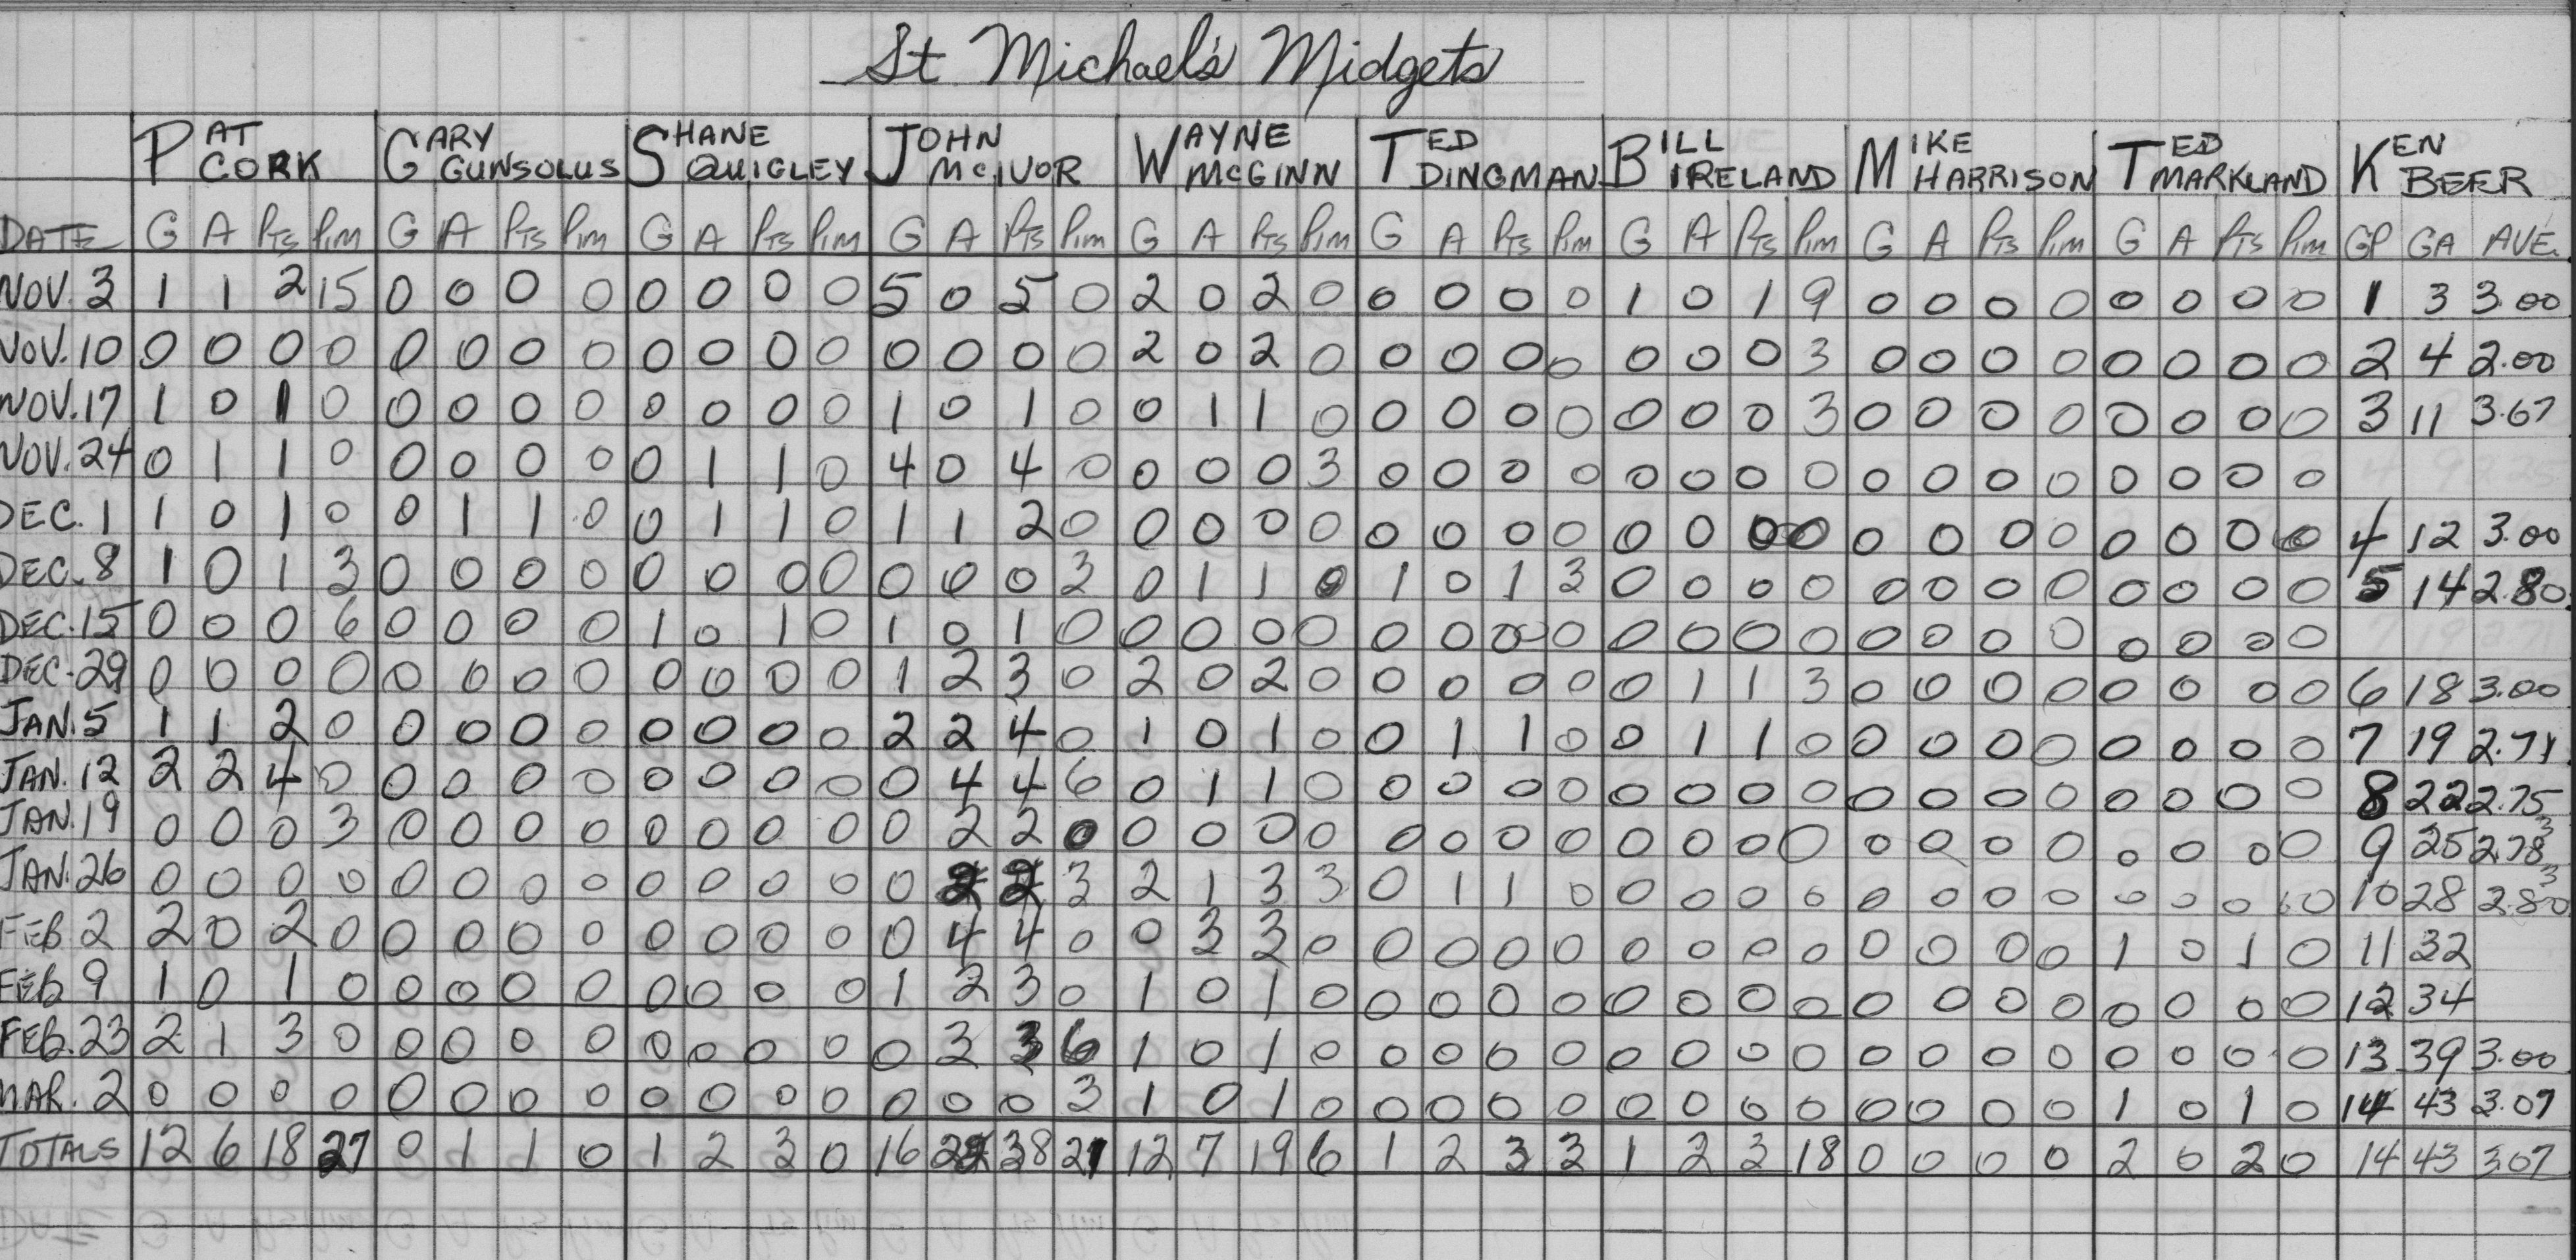 St Michael's Midgets
PAT CORK GARY GUNSOLUS SHANE QUIGLEY JOHN McIVOR WAYNE McGINN TED DINGMAN BILL IRELAND MIKE HARRISON TED MARKLAND KEN BEER
DATE G A PTS PIM G A PTS PIM G A PTS PIM G A PTS PIM G A PTS PIM G A PTS PIM G A PTS PIM G A PTS PIM G A PTS PIM GP GA AVE.
NOV. 3 1 1 2 15 0 0 0 0 0 0 0 0 5 0 5 0 2 0 2 0 0 0 0 0 1 0 1 9 0 0 0 0 0 0 0 0 1 3 3.00
NOV. 10 0 0 0 0 0 0 0 0 0 0 0 0 0 0 0 0 2 0 2 0 0 0 0 0 0 0 0 3 0 0 0 0 0 0 0 0 2 4 2.00
NOV. 17 1 0 1 0 0 0 0 0 0 0 0 0 1 0 1 0 0 1 1 0 0 0 0 0 0 0 0 3 0 0 0 0 0 0 0 0 3 11 3.67
NOV. 24 0 1 1 0 0 0 0 0 0 1 1 0 4 0 4 0 0 0 0 3 0 0 0 0 0 0 0 0 0 0 0 0 0 0 0 0
DEC. 1 1 0 1 0 0 1 1 0 0 1 1 0 1 1 2 0 0 0 0 0 0 0 0 0 0 0 0 0 0 0 0 0 0 0 0 0 4 12 3.00
DEC. 8 1 0 1 3 0 0 0 0 0 0 0 0 0 0 0 3 0 1 1 0 1 0 1 3 0 0 0 0 0 0 0 0 0 0 0 0 5 14 2.80
DEC. 15 0 0 0 6 0 0 0 0 1 0 1 0 1 0 1 0 0 0 0 0 0 0 0 0 0 0 0 0 0 0 0 0 0 0 0 0
DEC. 29 0 0 0 0 0 0 0 0 0 0 0 0 1 2 3 0 2 0 2 0 0 0 0 0 0 1 1 3 0 0 0 0 0 0 0 0 6 18 3.00
JAN. 5 1 1 2 0 0 0 0 0 0 0 0 0 2 2 4 0 1 0 1 0 0 1 1 0 0 1 1 0 0 0 0 0 0 0 0 0 7 19 2.71
JAN. 12 2 2 4 0 0 0 0 0 0 0 0 0 0 4 4 6 0 1 1 0 0 0 0 0 0 0 0 0 0 0 0 0 0 0 0 0 8 22 2.75
JAN. 19 0 0 0 3 0 0 0 0 0 0 0 0 0 2 2 0 0 0 0 0 0 0 0 0 0 0 0 0 0 0 0 0 0 0 0 0 9 25 2.78 3
JAN. 26 0 0 0 0 0 0 0 0 0 0 0 0 0 2 2 3 2 1 3 3 0 1 1 0 0 0 0 0 0 0 0 0 0 0 0 0 10 28 2.80 3
FEB. 2 2 0 2 0 0 0 0 0 0 0 0 0 0 4 4 0 0 3 3 0 0 0 0 0 0 0 0 0 0 0 0 0 1 0 1 0 11 32
FEB 9 1 0 1 0 0 0 0 0 0 0 0 0 1 2 3 0 1 0 1 0 0 0 0 0 0 0 0 0 0 0 0 0 0 0 0 0 12 34
FEB. 23 2 1 3 0 0 0 0 0 0 0 0 0 0 3 3 6 1 0 1 0 0 0 0 0 0 0 0 0 0 0 0 0 0 0 0 0 13 39 3.00
MAR. 2 0 0 0 0 0 0 0 0 0 0 0 0 0 0 0 3 1 0 1 0 0 0 0 0 0 0 0 0 0 0 0 0 1 0 1 0 14 43 3.07
TOTALS 12 6 18 27 0 1 1 0 1 2 3 0 16 22 38 21 12 7 19 6 1 2 3 3 1 2 3 18 0 0 0 0 2 0 2 0 14 43 3.07